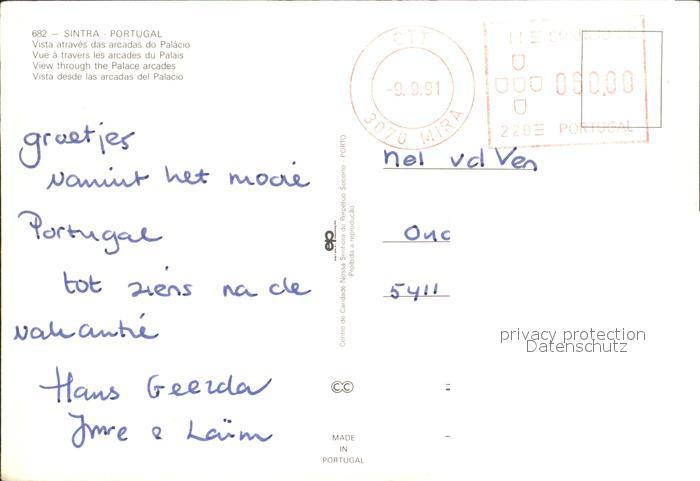 682 — SINTRA - PORTUGAL
Vista através das arcadas do Palácio
Vue à travers les arcades du Palais
View through the Palace arcades
Vista desde las arcadas del Palacio
CTT
-9.9.91
3070 MIRA
060,00
220 PORTUGAL
groetjes
vanuit het mooie
Portugal
tot ziens na de
vakantie
Hans Geerda
Imre e Laïm
nel vd Ven
5411
Centro de Caridade Nossa Senhora do Perpétuo Socorro - PORTO
Proibida a reprodução
MADE
IN
PORTUGAL
privacy protection
Datenschutz